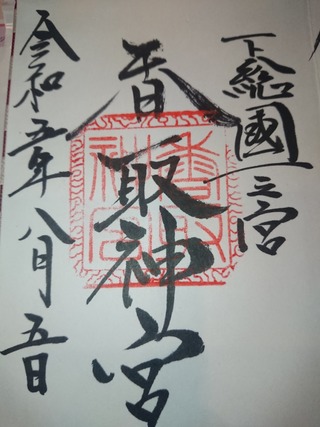 下総國一之宮
香取神宮
香取
神宮
令和五年八月五日